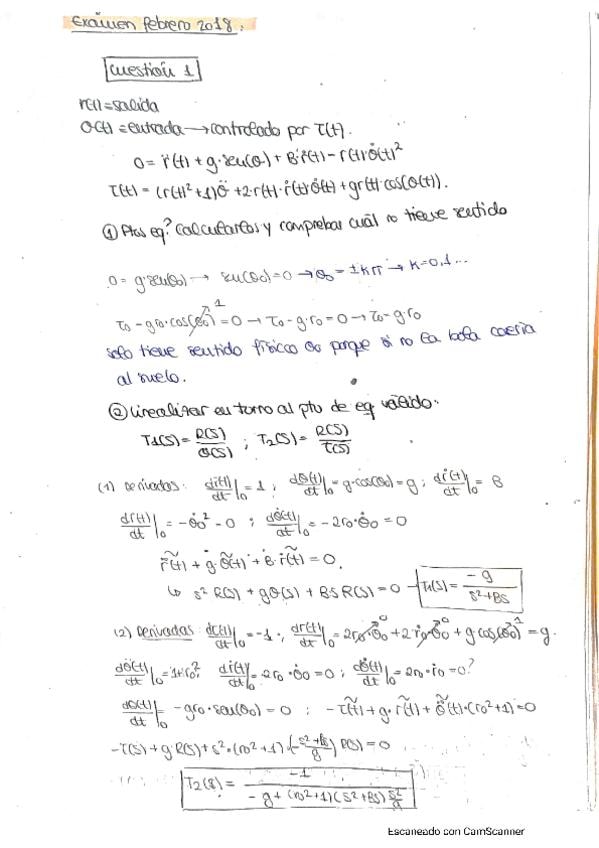 Exámen febrero 2018.
Cuestión 1
r(t) = salida
θ(t) = entrada → controlado por τ(t).
0 = r̈(t) + g·sen(θ) + B·ṙ(t) - r(t)·θ̇(t)²
τ(t) = (r(t)²+1)θ̈ + 2·r(t)·ṙ(t)·θ̇(t) + gr(t)·cos(θ(t)).
① Ptos eq? Calcularlos y comprobar cuál no tiene sentido
0 = g·sen(θ0) → sen(θ0) = 0 → θ0 = ±kπ → k=0,1...
τ0 - gr0·cos(θ0) = 0 → τ0 - g·r0 = 0 → τ0 = g·r0
1
solo tiene sentido físico θ0 porque si no la bola caería
al suelo.
② Linealizar en torno al pto de eq válido.
T1(s) = R(s)/θ(s) ; T2(s) = R(s)/τ(s)
(1) Derivadas: dr̈(t)/dt|0 = 1 ; dθ(t)/dt|0 = g·cos(θ0) = g ; dṙ(t)/dt|0 = B
dr(t)/dt|0 = -θ̇0² = 0 ; dθ̇(t)/dt|0 = -2r0·θ̇0 = 0
r̈̃(t) + g·θ̃(t) + B·ṙ̃(t) = 0.
↳ s² R(s) + gθ(s) + BS R(s) = 0 → T1(s) = -g/(s²+Bs)
(2) Derivadas: dτ(t)/dt|0 = -1 ; dr(t)/dt|0 = 2r0·θ̈0 + 2ṙ0·θ̇0 + g·cos(θ0) = g.
0 0 1
dθ̈(t)/dt|0 = 1+r0² ; dṙ(t)/dt|0 = 2r0·θ̇0 = 0 ; dθ̇(t)/dt|0 = 2r0·ṙ0 = 0?
dθ(t)/dt|0 = -gr0·sen(θ0) = 0 ; -τ̃(t) + g·r̃(t) + θ̈̃(t)·(r0²+1) = 0
-τ(s) + g R(s) + s²·(r0²+1)·(-(s²+Bs)/g) R(s) = 0
T2(s) = -1/(-g + (r0²+1)(s²+Bs) s²/g)
Escaneado con CamScanner